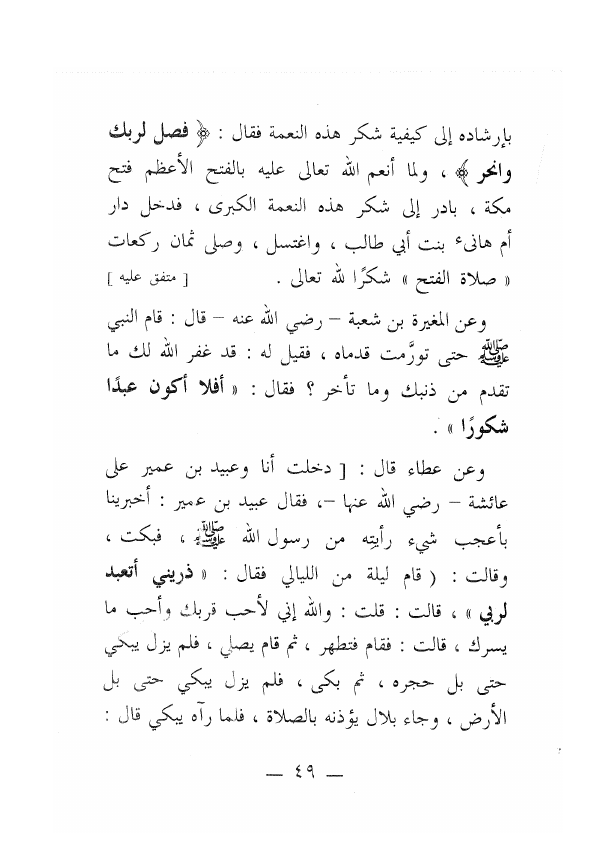 بإرشاده إلى كيفية شكر هذه النعمة فقال : ﴿ فصل لربك
وانحر ﴾ ، ولما أنعم الله تعالى عليه بالفتح الأعظم فتح
مكة ، بادر إلى شكر هذه النعمة الكبرى ، فدخل دار
أم هانىء بنت أبي طالب ، واغتسل ، وصلى ثمان ركعات
« صلاة الفتح » شكرًا لله تعالى . [ متفق عليه ]
وعن المغيرة بن شعبة – رضي الله عنه – قال : قام النبي
ﷺ حتى تورَّمت قدماه ، فقيل له : قد غفر الله لك ما
تقدم من ذنبك وما تأخر ؟ فقال : « أفلا أكون عبدًا
شكورًا » .
وعن عطاء قال : [ دخلت أنا وعبيد بن عمير على
عائشة – رضي الله عنها –، فقال عبيد بن عمير : أخبرينا
بأعجب شيء رأيتِه من رسول الله ﷺ ، فبكت ،
وقالت : ( قام ليلة من الليالي فقال : « ذريني أتعبد
لربي » ، قالت : قلت : والله إني لأحب قربك وأحب ما
يسرك ، قالت : فقام فتطهر ، ثم قام يصلي ، فلم يزل يبكي
حتى بل حجره ، ثم بكى ، فلم يزل يبكي حتى بل
الأرض ، وجاء بلال يؤذنه بالصلاة ، فلما رآه يبكي قال :
— ٤٩ —